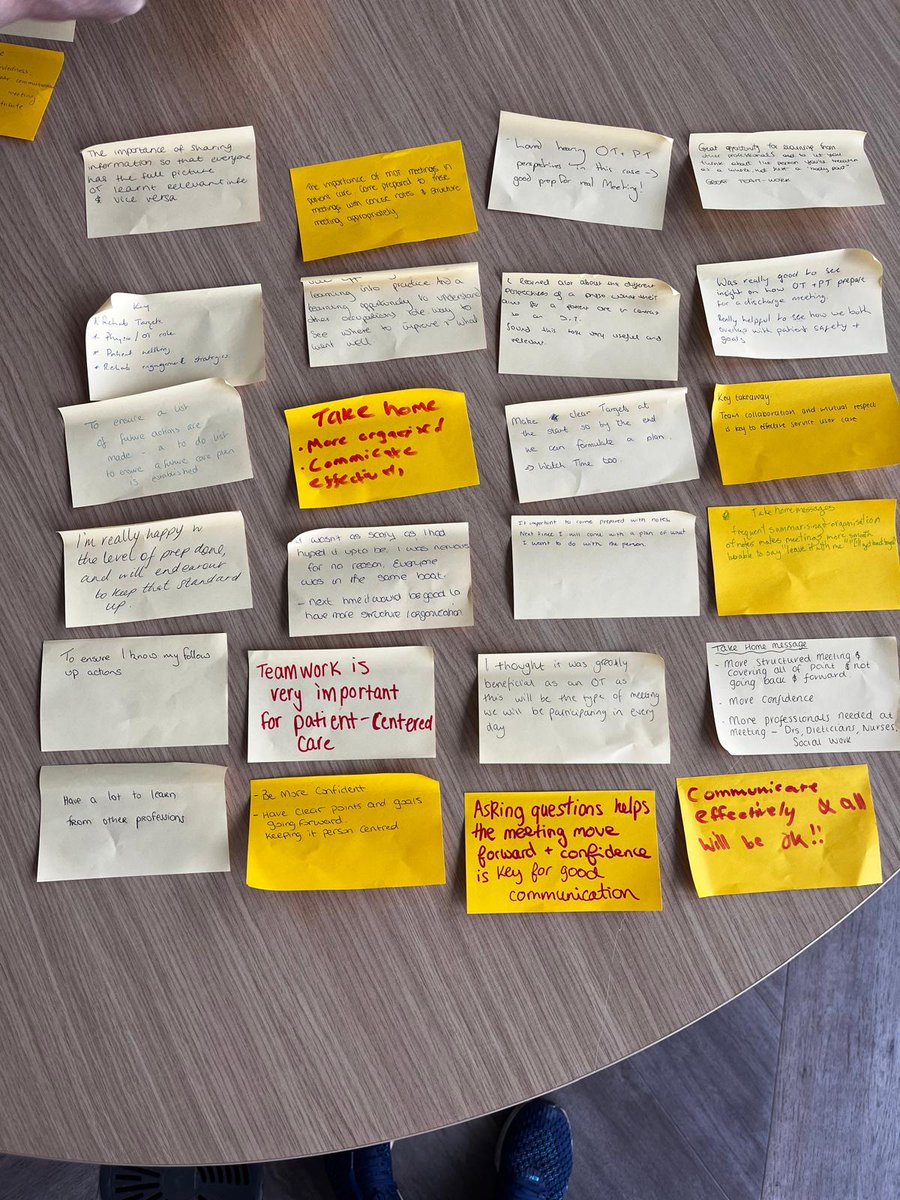 meeting
The importance of sharing
information so that everyone
has the full picture
OT learnt relevant info
& vice versa
The importance of MDT meetings in
patient care. Come prepared to these
meetings with concise notes & structure
meeting appropriately.
- Loved hearing OT + PT
perspectives in this case →
good prep for real Meeting!
Great opportunity for learning from
other professionals and to let you
think about the person you're treating
as a whole, not just a "body part"
GREAT TEAM-WORK
Key
* Rehab Targets
* Physio / OT role
* Patient wellbeing
* Rehab engagement strategies
learning into practice. And a
learning opportunity to understand
other occupations role. way to
see where to improve & what
went well
I learned alot about the different
perspectives of a physio versus their
aims for a patient are in contrast
to an O.T.
Found this tool very useful and
relevant.
Was really good to see
insight on how OT + PT prepare
for a discharge meeting.
Really helpful to see how we both
overlap with patient safety +
goals
To ensure a list
of future actions are
made - a to do list
to ensure a future care plan
is established
Take home
• More organised
• Commicate
effectively
Make clear Targets at
the start so by the end
we can formulate a plan.
→ Watch Time too.
Key takeaway:
Team collaboration and mutual respect
is key to effective service user care
I'm really happy w
the level of prep done,
and will endeavour
to keep that standard
up.
It wasn't as scary as I had
hyped it up to be. I was nervous
for no reason. Everyone
was in the same boat.
- Next time it would be good to
have more structure / organisation
It important to come prepared with notes.
Next time I will come with a plan of what
I want to do with the person.
Take home messages
frequent summarising + organisation
of notes makes meetings more smooth
be able to say "leave it with me
To ensure I know my follow
up actions
Teamwork is
very important
for patient-centered
care
I thought it was greatly
beneficial as an OT as
this will be the type of meeting
we will be participating in every
day
Take Home message
- More structured meeting &
covering all of point & not
going back & forward
- More confidence
- More professionals needed at
meeting - Drs, Dieticians, Nurses,
Social Work
Have a lot to learn
from other professions
- Be More Confident
- Have clear points and goals
going forward.
Keeping it person centred
Asking questions helps
the meeting move
forward + confidence
is key for good
communication
Communicate
effectively & all
will be ok!!